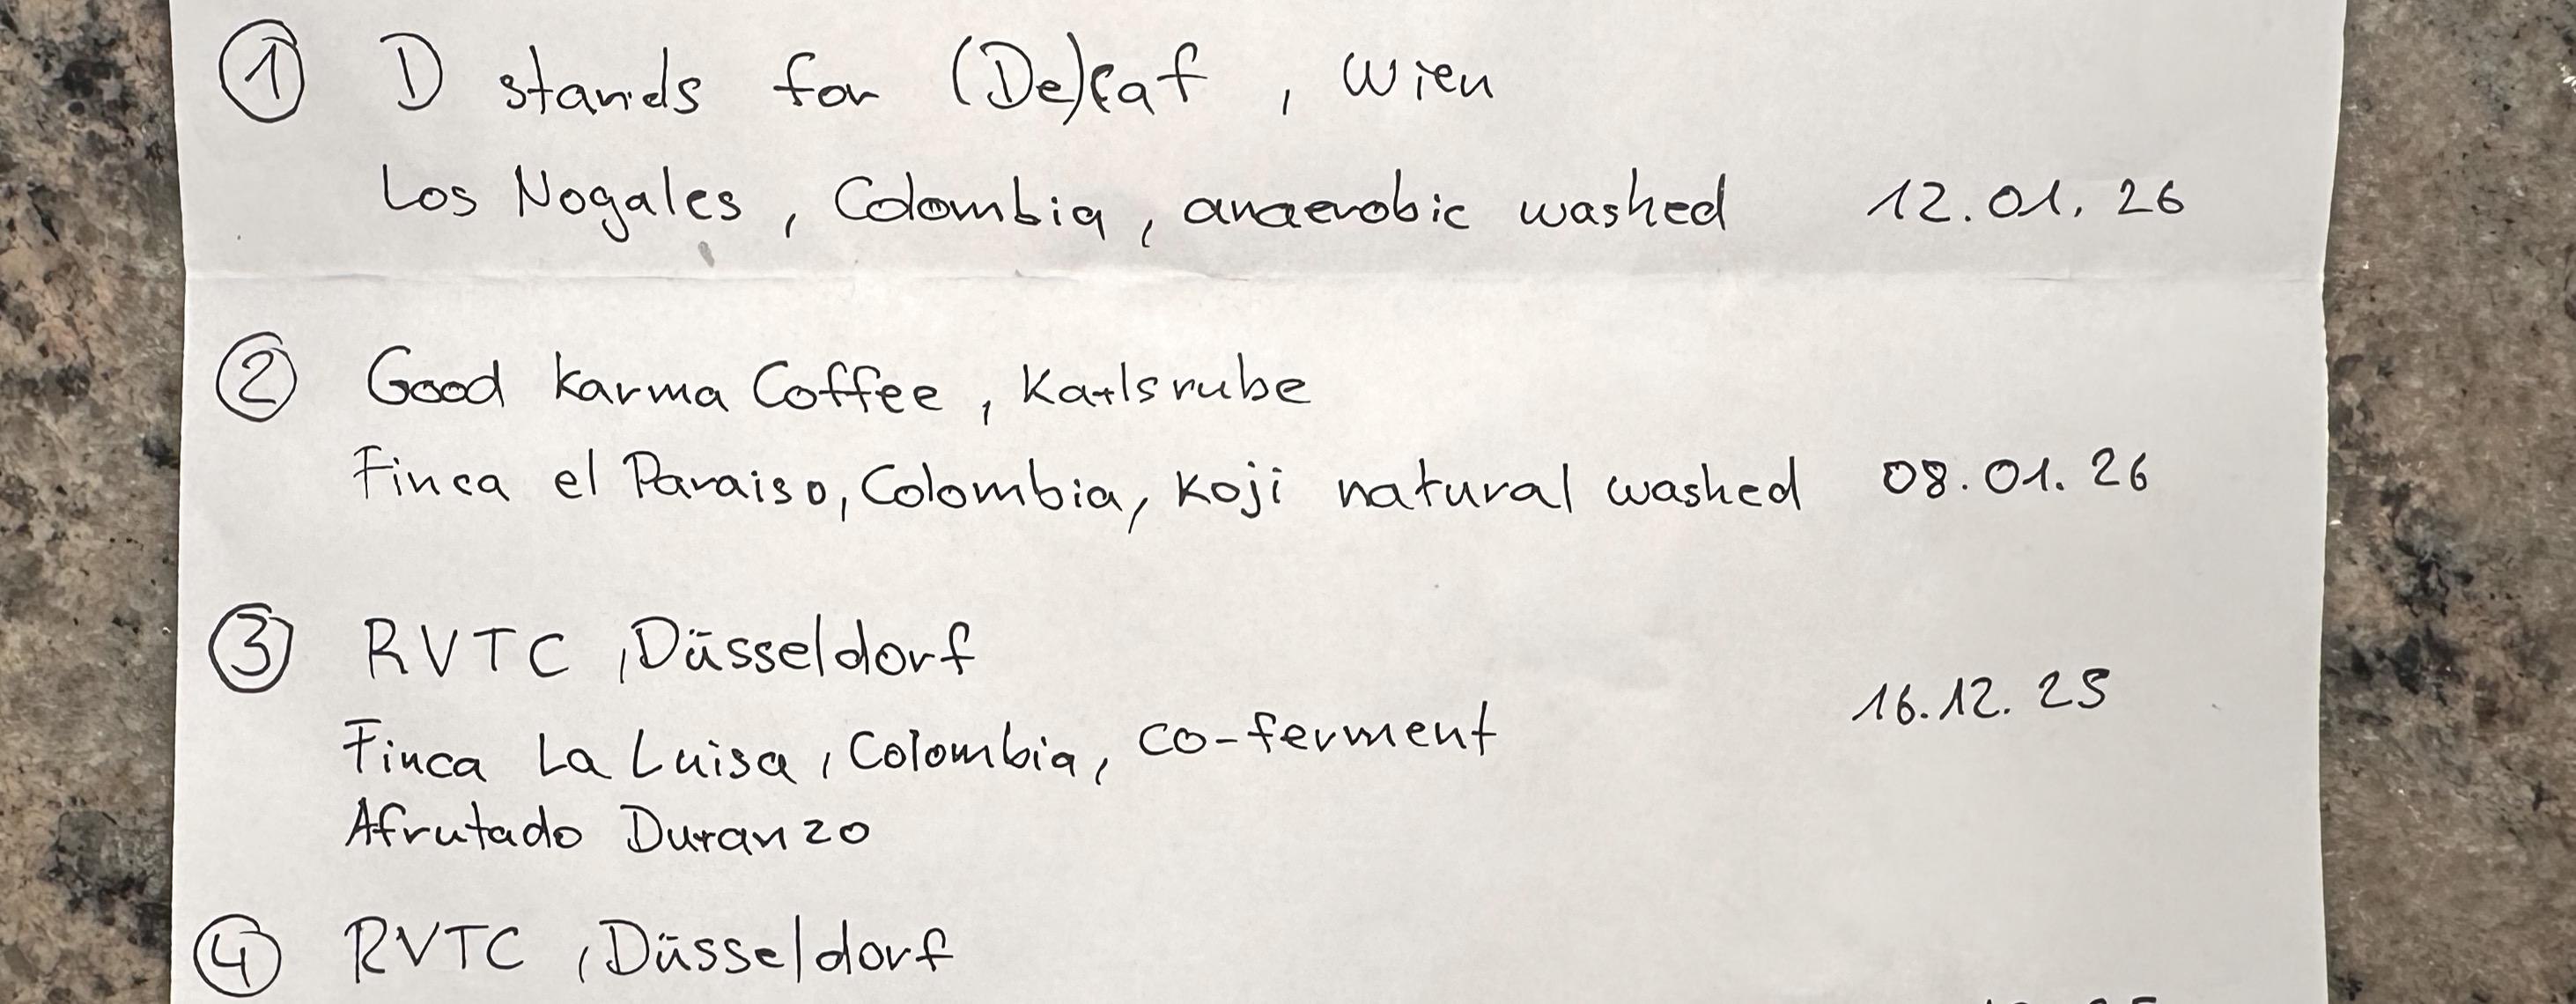 ① D stands for (De)caf, Wien
Los Nogales, Colombia, anaerobic washed 12.01.26
② Good Karma Coffee, Karlsruhe
Finca el Paraiso, Colombia, Koji natural washed 08.01.26
③ RVTC, Düsseldorf
16.12.25
Finca La Luisa, Colombia, co-ferment
Afrutado Duranzo
④ RVTC, Düsseldorf